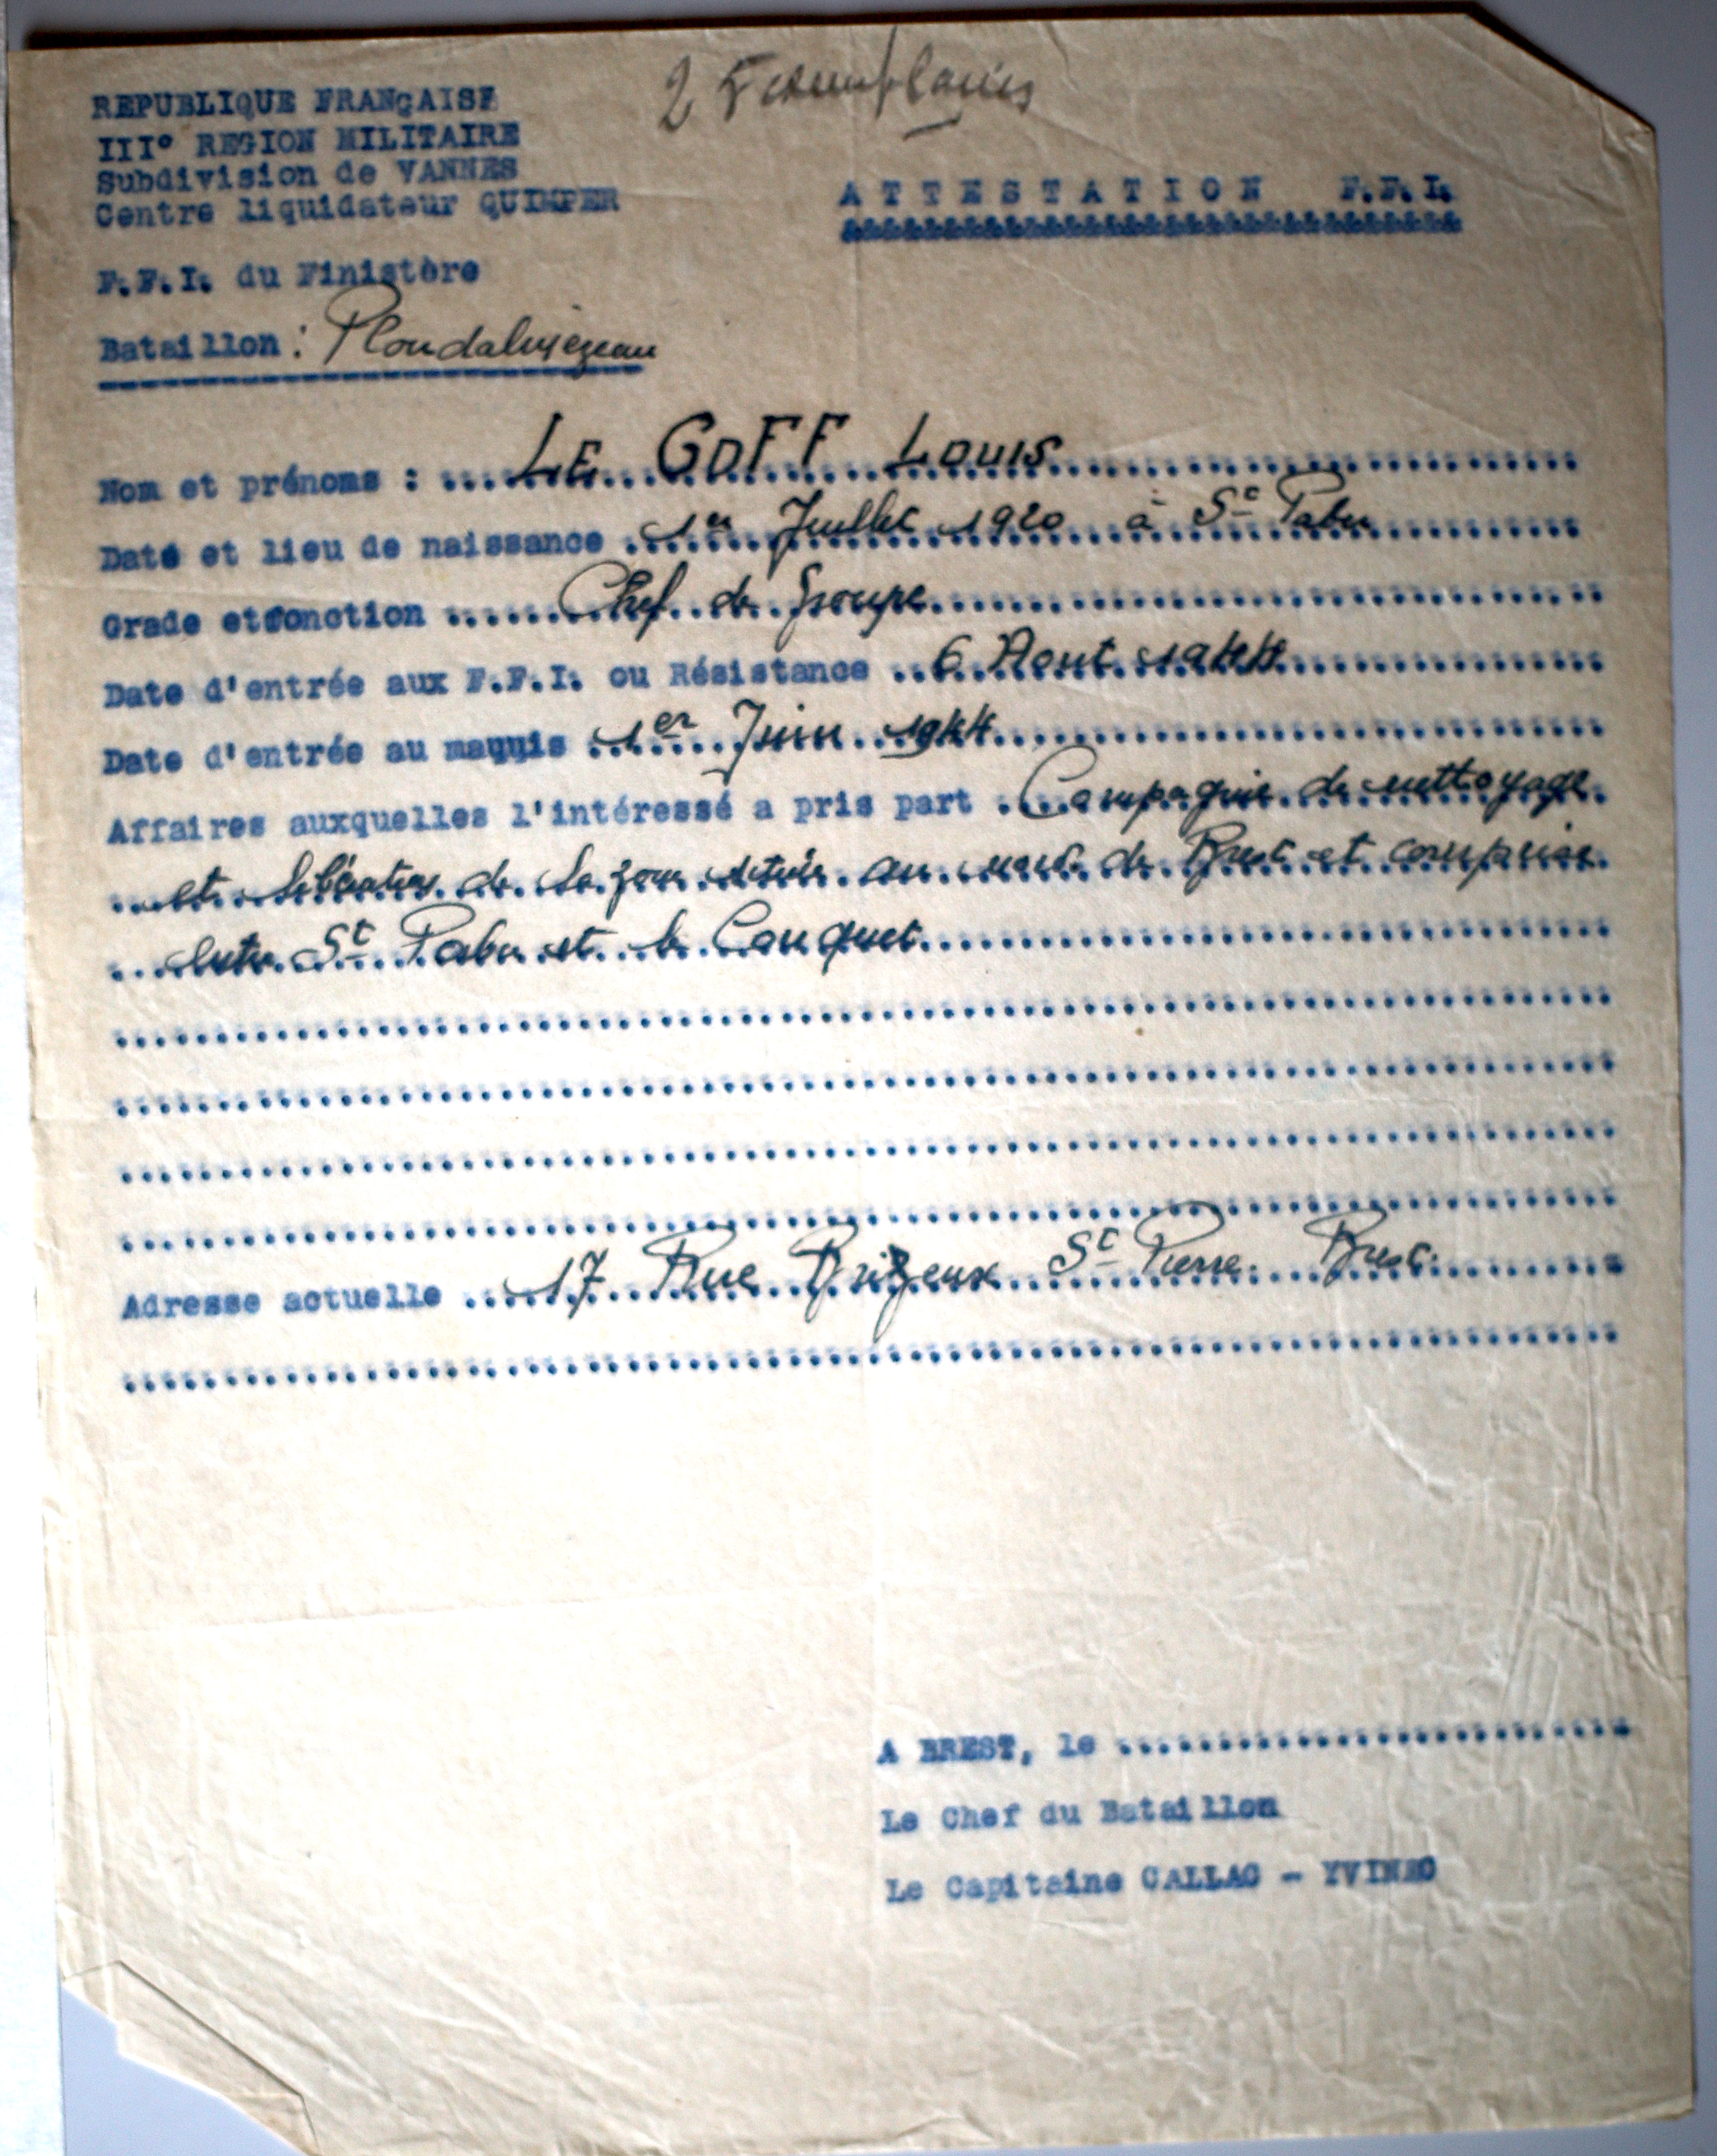 2 Exemplaires
REPUBLIQUE FRANÇAISE
III° REGION MILITAIRE
Subdivision de VANNES
Centre liquidateur QUIMPER
ATTESTATION F.F.I.
F.F.I. du Finistère
Bataillon : Ploudalmézeau
Nom et prénoms : LE GOFF LOUIS
Date et lieu de naissance 1er Juillet 1920 à St Pabu
Grade et fonction Chef de Groupe
Date d'entrée aux F.F.I. ou Résistance 6 Aout 1944
Date d'entrée au maquis 1er Juin 1944
Affaires auxquelles l'intéressé a pris part Campagnie de nettoyage
et libération de la zone située au nord de Brest et comprise
entre St Pabu et le Conquet
Adresse actuelle 17 Rue Brizeux St Pierre Brest
A BREST, le
Le Chef du Bataillon
Le Capitaine CALLAC - YVINEC